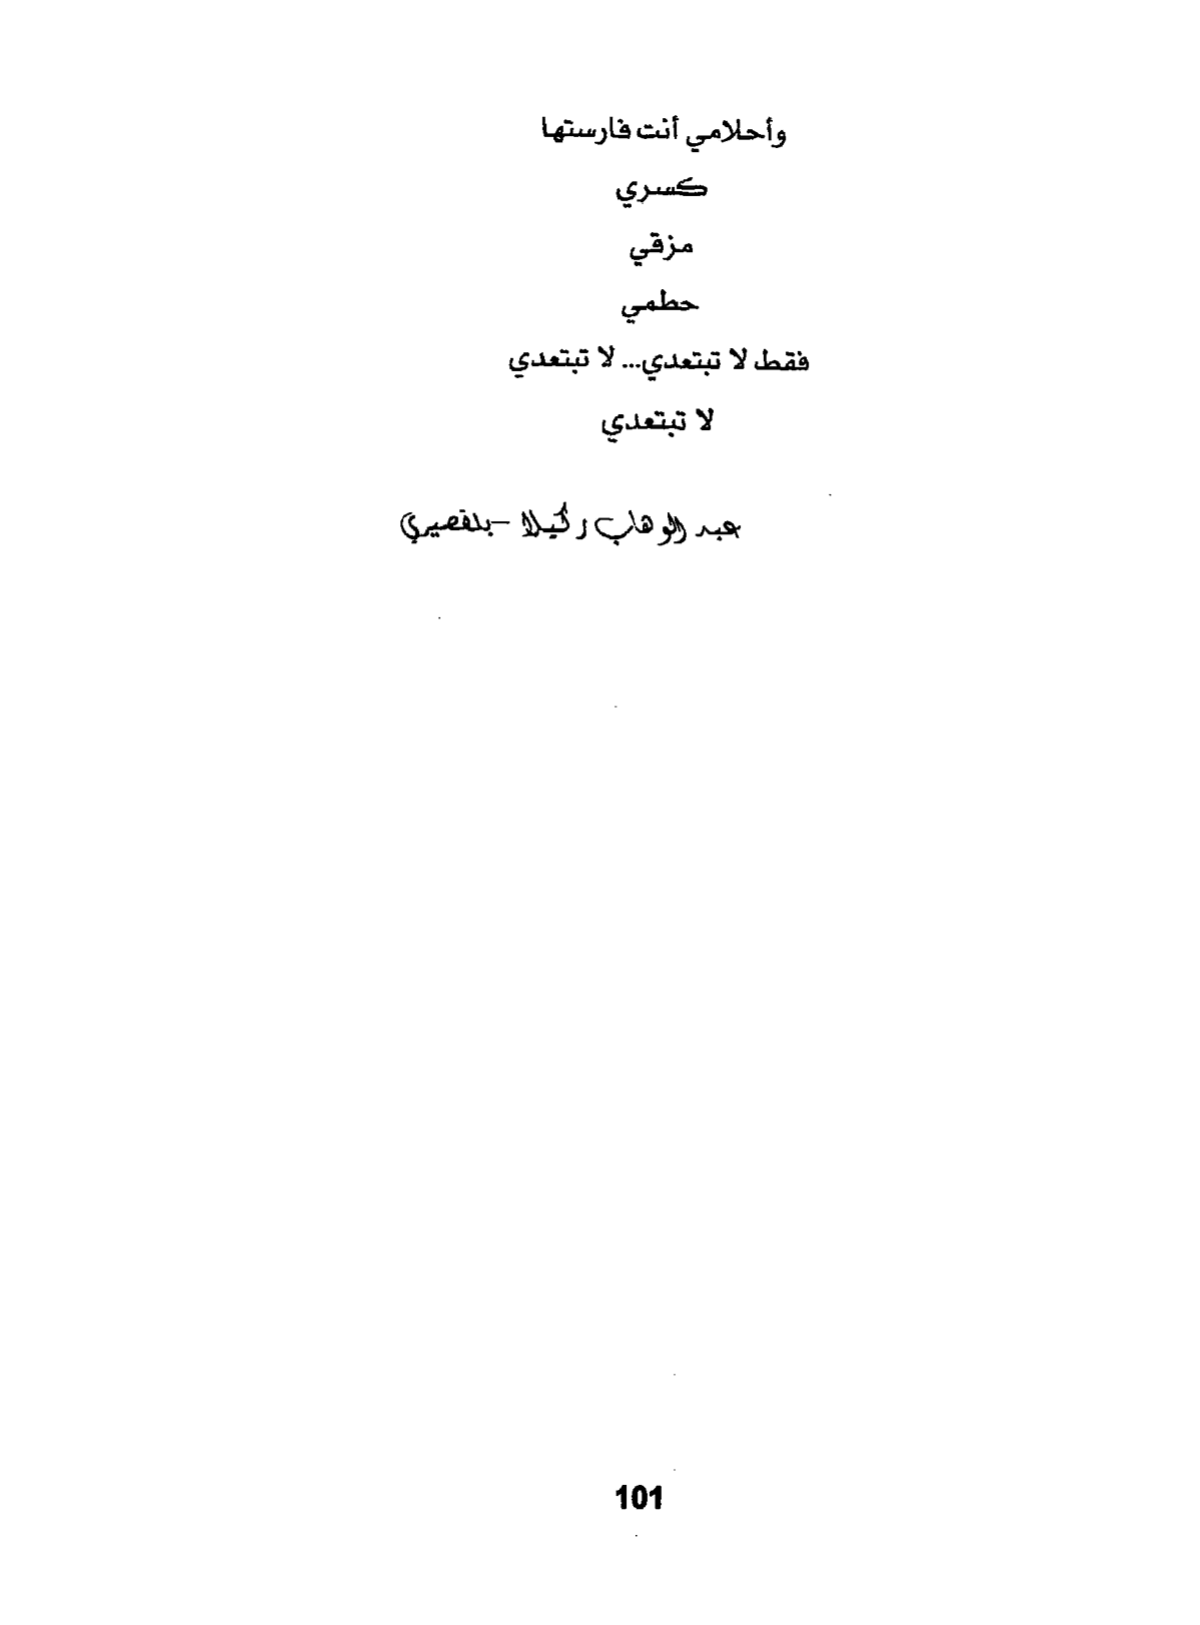 وأحلامي أنت فارستها
كسري
مزقي
حطمي
فقط لا تبتعدي... لا تبتعدي
لا تبتعدي
عبد الوهاب زكيلا - بلقصيري
101